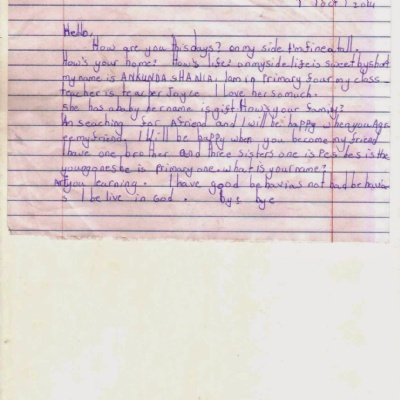 1 Oct 2014
Hello,
How are you this days? on my side I'm fine atall.
How's your home? How's life? on my side life is sweet by short
my name is ANKUNDA SHANIA. Iam in Primary four my class
teacher is teacher Joyce I love her so much.
She has a baby her name is gift. How's your family?
Am seaching for Afriend and I will be happy when you Agr
ee my friend. I will be happy when you become my friend
I have one brother and three sisters one is
youngones he is primary one. what is your name?
Are you learning. I have good behavias not bad behavia
s I belive in God. bye bye